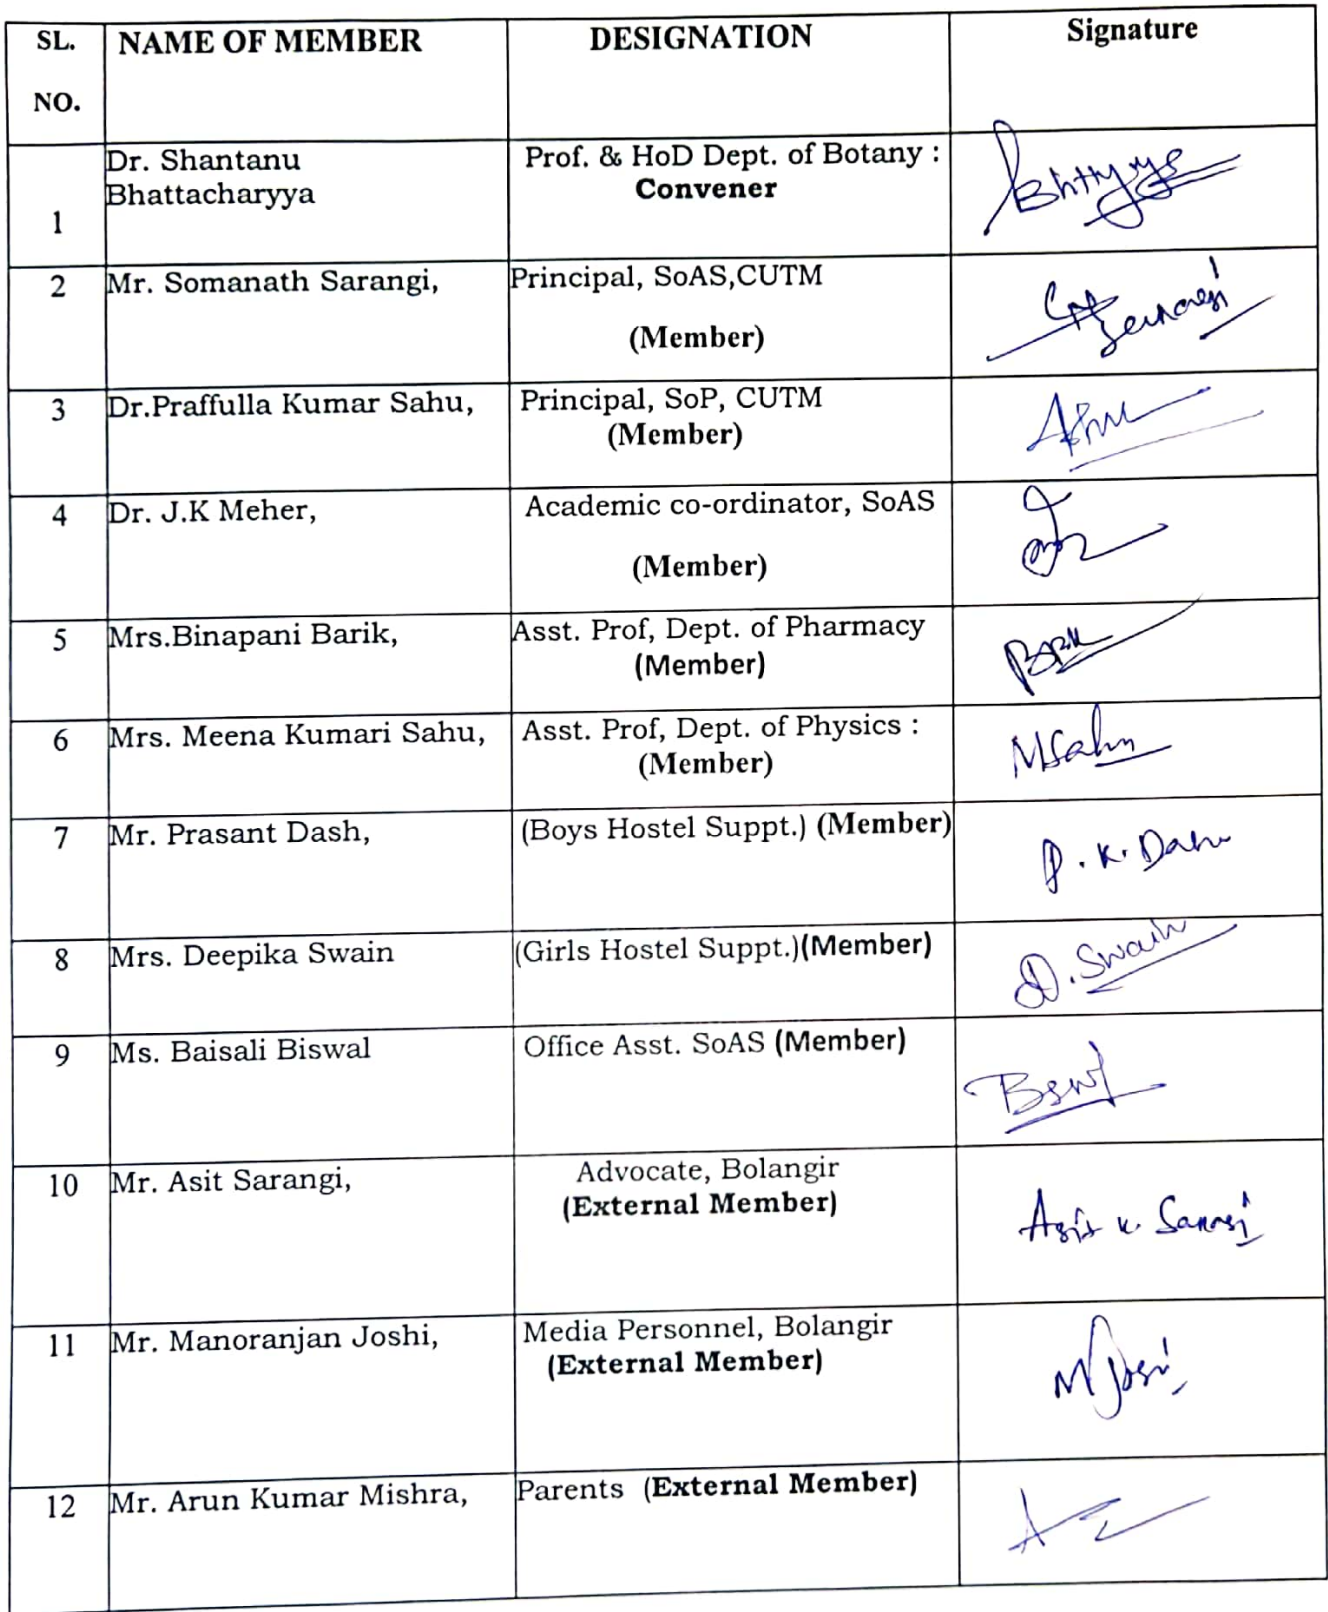 SL. NAME OF MEMBER DESIGNATION Signature
NO.
Dr. Shantanu Prof. & HoD Dept. of Botany :
Bhattacharyya Convener
1
2 Mr. Somanath Sarangi, Principal, SoAS,CUTM
(Member)
3 Dr.Praffulla Kumar Sahu, Principal, SoP, CUTM
(Member)
4 Dr. J.K Meher, Academic co-ordinator, SoAS
(Member)
5 Mrs.Binapani Barik, Asst. Prof, Dept. of Pharmacy
(Member)
6 Mrs. Meena Kumari Sahu, Asst. Prof, Dept. of Physics : MSahu
(Member)
7 Mr. Prasant Dash, (Boys Hostel Suppt.) (Member)
P. K. Dash
8 Mrs. Deepika Swain (Girls Hostel Suppt.)(Member) D. Swain
9 Ms. Baisali Biswal Office Asst. SoAS (Member)
10 Mr. Asit Sarangi, Advocate, Bolangir
(External Member) Asit K. Sarangi
11 Mr. Manoranjan Joshi, Media Personnel, Bolangir
(External Member)
12 Mr. Arun Kumar Mishra, Parents (External Member)